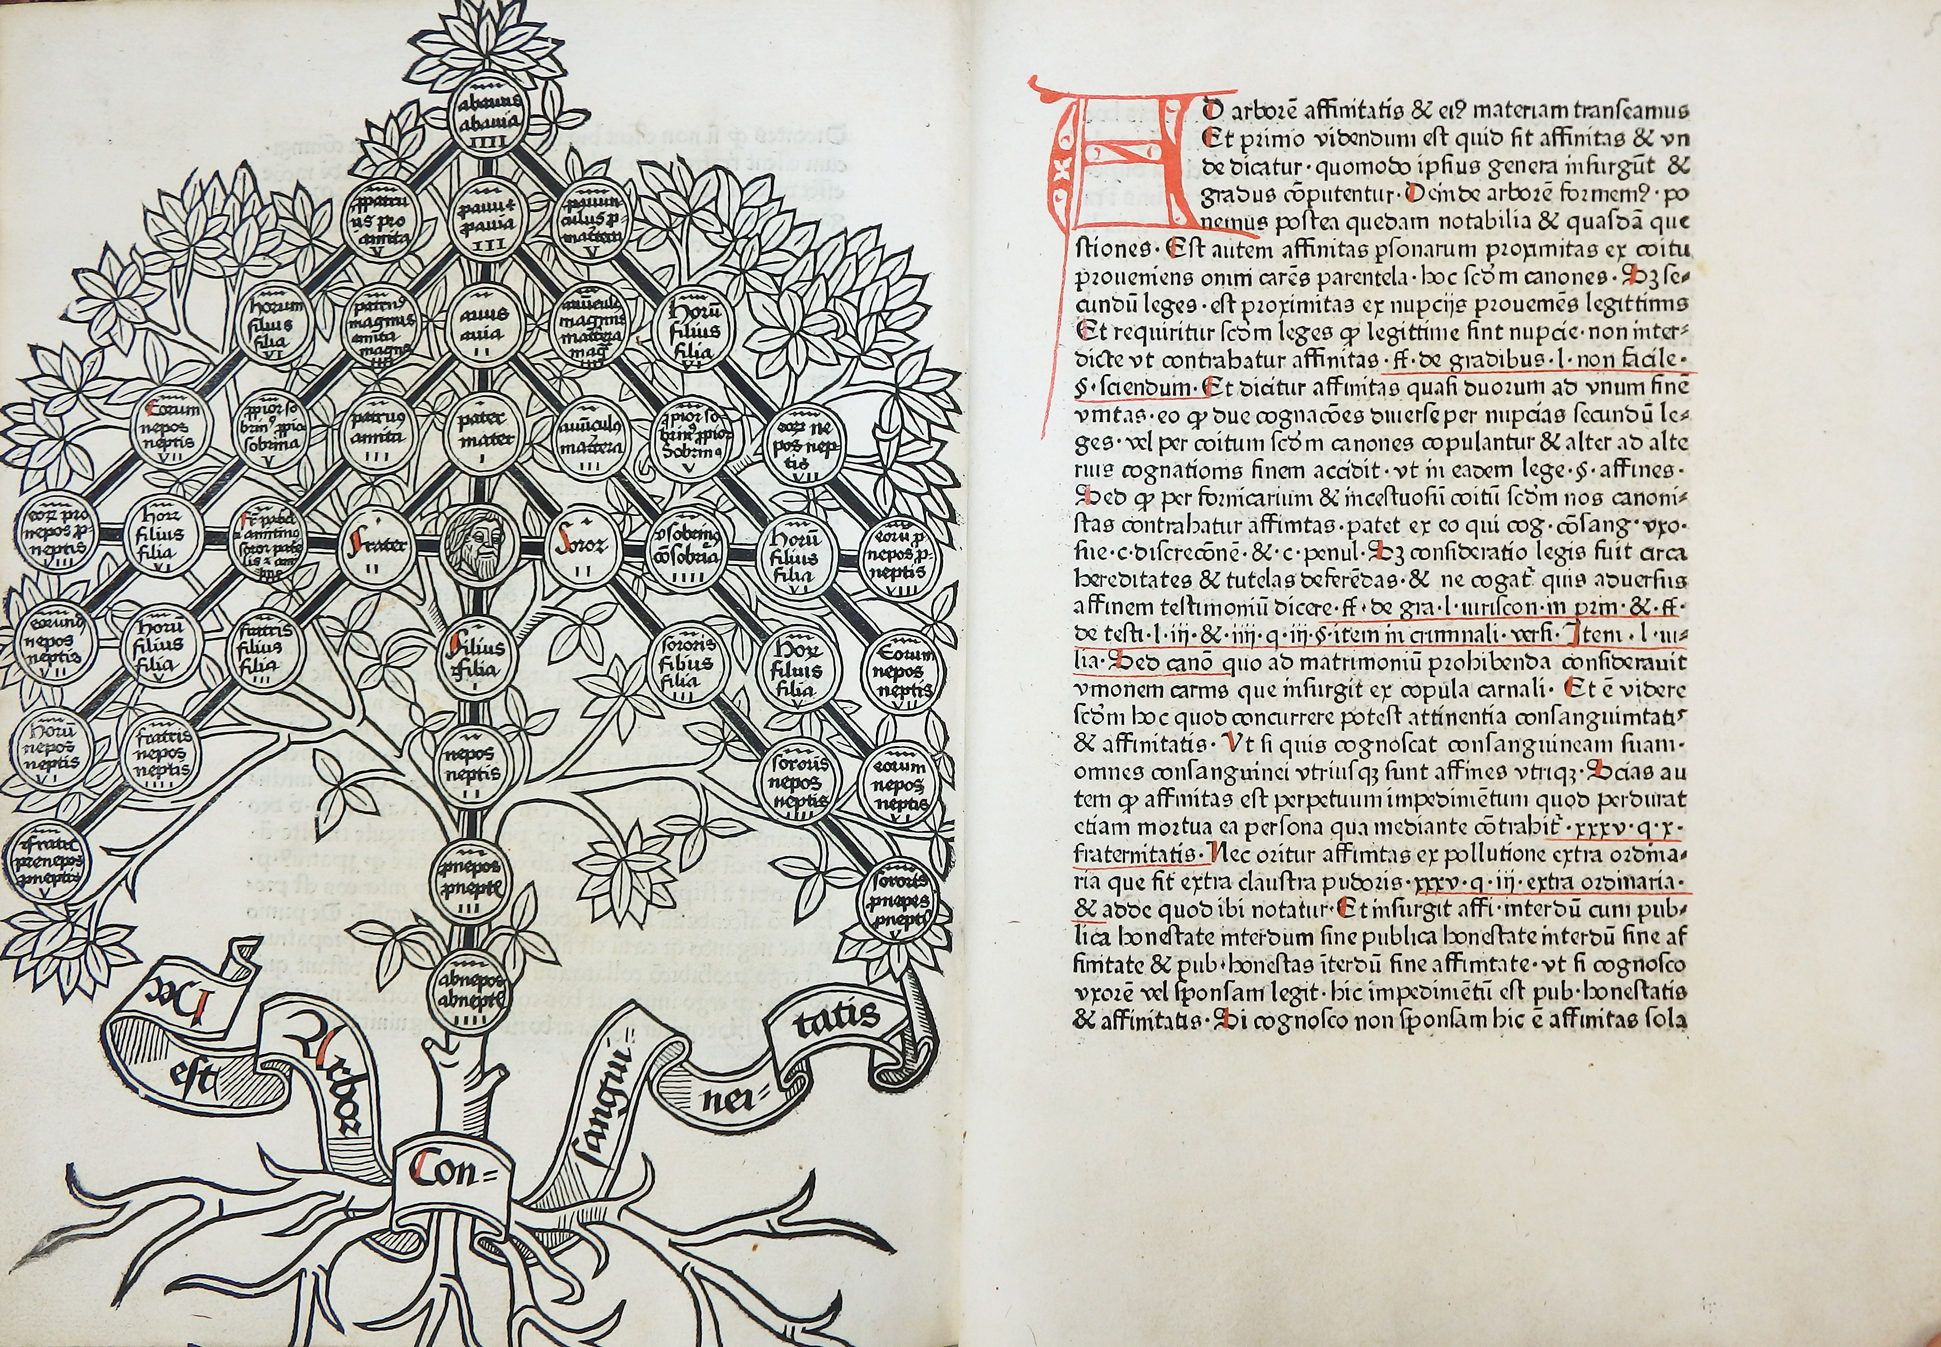 abauus
abauia
IIII
ꝓpatru
us pro
amita
V
ꝓauus
ꝓauia
III
ꝓauun
culus ꝓ
matertera
V
horum
filius
filia
VI
patruꝰ
magnus
amita
magna
IIII
auus
auia
II
auūculꝰ
magnus
matertera
magͣ
IIII
Horū
filius
filia
VI
Eorum
nepos
neptis
VII
ꝓpior so
brinꝰ ꝓpia
sobrina
V
patruꝰ
amita
III
pater
mater
I
auūculꝰ
matertera
III
ꝓpior so
brinꝰ ꝓpior
sobrina
V
eorꝝ ne
pos nep
tis
VII
eorꝝ pro
nepos ꝓ
neptis
VIII
horꝝ
filius
filia
VI
Frater
II
Soror
II
ↄsobrinꝰ
cōsobrīa
IIII
Horū
filius
filia
VI
eorū ꝓ
nepos ꝓ
neptis
VIII
eorum
nepos
neptis
VII
Horū
filius
filia
V
fratris
filius
filia
III
Filius
Filia
I
sororis
filius
filia
III
Horꝝ
filius
filia
V
Eorum
nepos
neptis
VII
Horū
nepos
neptis
VI
fratris
nepos
neptis
IIII
nepos
neptis
II
sororis
nepos
neptis
IIII
eorum
nepos
neptis
VI
Fratris
pronepos
ꝓneptis
V
pnepos
pneptis
III
sororis
ꝓnepos
ꝓneptis
V
abnepos
abneptis
IIII
Hec
est
Arbor
Con=
sangui=
nei=
tatis
AD arborē affinitatis & eiꝰ materiam transeamus
Et primo videndum est quid sit affinitas & vn
de dicatur · quomodo ipsius genera insurgūt &
gradus cōputentur · Deinde arborē formemꝰ · po
nemus postea quedam notabilia & quasdā que
stiones · Est autem affinitas ꝑsonarum proximitas ex coitu
proueniens omni carēs parentela · hoc scd̄m canones · Sꝫ se⸗
cundū leges · est proximitas ex nupcijs proueniēs legittimis
Et requiritur scd̄m leges ꝙ legittime sint nupcie · non inter⸗
dicte vt contrahatur affinitas · ff · de gradibus · l · non facile ·
§ · sciendum · Et dicitur affinitas quasi duorum ad vnum finē
vnitas · eo ꝙ due cognacōes diuerse per nupcias secundū le⸗
ges · vel per coitum scd̄m canones copulantur & alter ad alte
rius cognationis finem accidit · vt in eadem lege · § · affines ·
Sed ꝙ per fornicarium & incestuosū coitū scd̄m nos canoni⸗
stas contrahatur affinitas · patet ex eo qui cog · cōsang · vxo ·
sue · c · discrecōnē · & · c · penul · Sꝫ consideratio legis fuit circa
hereditates & tutelas deferēdas · & ne cogat̃ quis aduersus
affinem testimoniū dicere · ff · de gra · l · iuriscon · in prin · & · ff ·
de testi · l · iij · & · iiij · q · iij · § · item in criminali · versi · Item · l · iu⸗
lia · Sed canō quo ad matrimoniū prohibenda considerauit
vnionem carnis que insurgit ex copula carnali · Et ē videre
scd̄m hoc quod concurrere potest attinentia consanguinitatis
& affinitatis · Vt si quis cognoscat consanguineam suam ·
omnes consanguinei vtriusqꝫ sunt affines vtriqꝫ · Scias au
tem ꝙ affinitas est perpetuum impedimētum quod perdurat
etiam mortua ea persona qua mediante cōtrahit̃ · xxxv · q · x ·
fraternitatis · Nec oritur affinitas ex pollutione extra ordina⸗
ria que fit extra claustra pudoris · xxxv · q · iij · extra ordinaria ·
& adde quod ibi notatur · Et insurgit affi · interdū cum pub⸗
lica honestate interdum sine publica honestate interdū sine af
finitate & pub · honestas īterdū sine affinitate · vt si cognosco
vxorē vel sponsam legit · hic impedimētū est pub · honestatis
& affinitatis · Si cognosco non sponsam hic ē affinitas sola